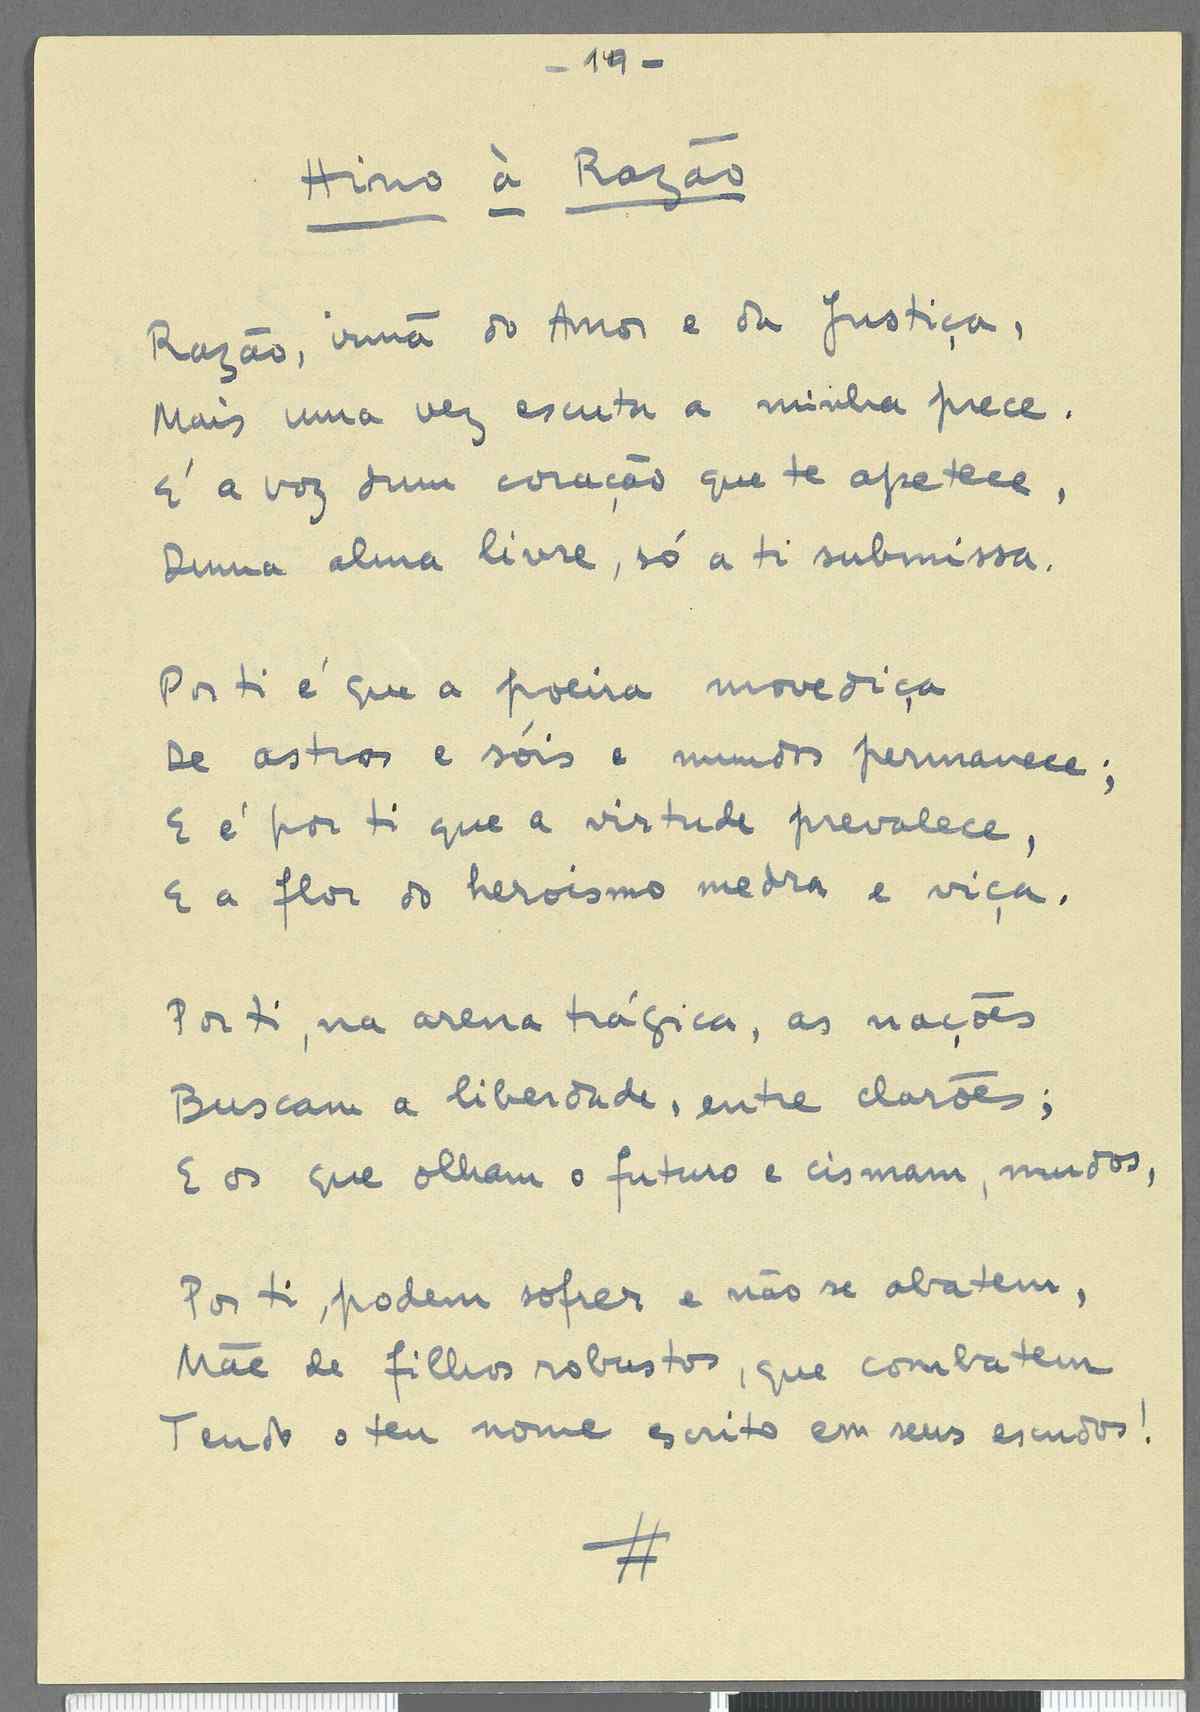 Hino à Razão
Razão, irmã do Amor e da Justiça,
Mais uma vez escuta a minha prece.
É a voz dum coração que te apetece,
Duma alma livre, só a ti submissa.
Por ti é que a poeira movediça
De astros e sóis e mundos permanece;
E é por ti que a virtude prevalece,
E a flor do heroismo medra e viça.
Por ti, na arena trágica, as nações
Buscam a liberdade, entre clarões;
E os que olham o futuro e cismam, mudos,
Por ti, podem sofrer e não se abatem,
Mãe de filhos robustos, que combatem
Tendo o teu nome escrito em seus escudos!